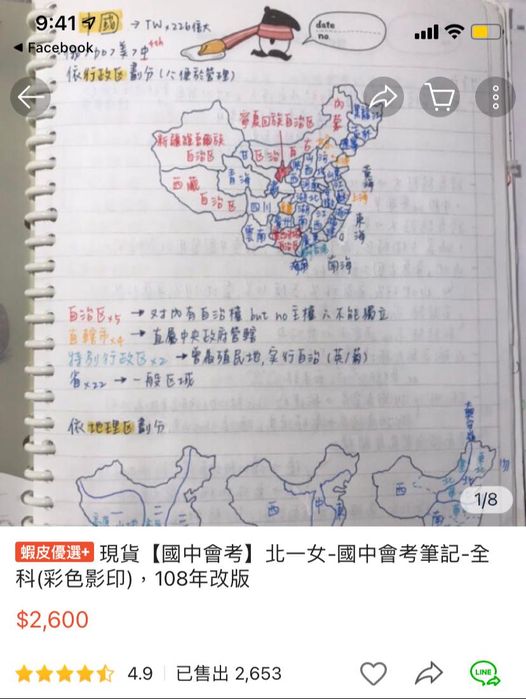 9:41
Facebook
中國 → TW x 226倍大
date
no
依行政区劃分(∵便於管理)
內蒙
寧夏回族自治区
新疆維吾爾族
自治区
甘
西藏
自治区
青海
四川
雲南
黃海
上海
東海
南海
自治区x5 → 对內有自治權 but no主權 ∴不能獨立
直轄市x4 → 直屬中央政府管轄
特別行政区x2 → 曾為殖民地,实行自治(英/葡)
省x22 → 一般区域
依地理区劃分
大興安嶺
東北
西
中
南
西
南
1/8
蝦皮優選+ 現貨【國中會考】北一女-國中會考筆記-全
科(彩色影印),108年改版
$2,600
4.9
已售出 2,653
LINE